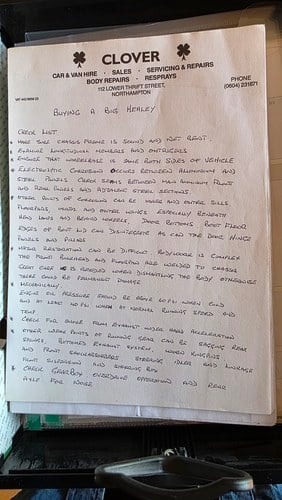 CLOVER
CAR & VAN HIRE · SALES · SERVICING & REPAIRS
BODY REPAIRS · RESPRAYS
112 LOWER THRIFT STREET,
NORTHAMPTON
PHONE
(0604) 231671
BUYING A BIG HEALEY
CHECK LIST
MAKE SURE CHASSIS FRAME IS SOUND AND NOT BENT
EXAMINE LONGITUDINAL MEMBERS AND OUTRIGGERS
ENSURE THAT WHEELBASE IS SAME BOTH SIDES OF VEHICLE
ELECTROLYTIC CORROSION OCCURS BETWEEN ALUMINIUM AND
STEEL PANELS CHECK SEAMS BETWEEN MAIN ALUMINIUM FRONT
AND REAR PANELS AND ADJACENT STEEL SECTIONS.
OTHER POINTS OF CORROSION CAN BE INNER AND OUTER SILLS
FLOORPANS, INNER AND OUTER WINGS ESPECIALLY BENEATH
HEAD LAMPS AND BEHIND WHEELS, DOOR BOTTOMS BOOT FLOOR
EDGES OF BOOT LID CAN DISINTEGRATE AS CAN THE DOOR HINGE
PANELS AND PILLARS
MAJOR RESTORATION CAN BE DIFFICULT BODYWORK IS COMPLEX
THE FRONT BULKHEAD AND FLOORPAN ARE WELDED TO CHASSIS
GREAT CARE IS NEEDED WHEN DISMANTLING THE BODY OTHERWISE
THERE COULD BE PERMANENT DAMAGE
MECHANICALLY.
ENGINE OIL PRESSURE SHOULD BE ABOVE 60 PSI WHEN COLD
AND AT LEAST 40 PSI WHEN AT NORMAL RUNNING SPEED AND
TEMP
CHECK FOR SMOKE FROM EXHAUST UNDER HARD ACCELERATION
OTHER WEAK POINTS OF RUNNING GEAR CAN BE SAGGING REAR
SPRINGS, BATTERED EXHAUST SYSTEM, WORN KINGPINS
AND FRONT SHOCKABSORBERS STEERING IDLER AND LINKAGE
FRONT SUSPENSION AND STEERING BOX
CHECK GEARBOX OVERDRIVE OPERATION AND REAR
AXLE FOR NOISE